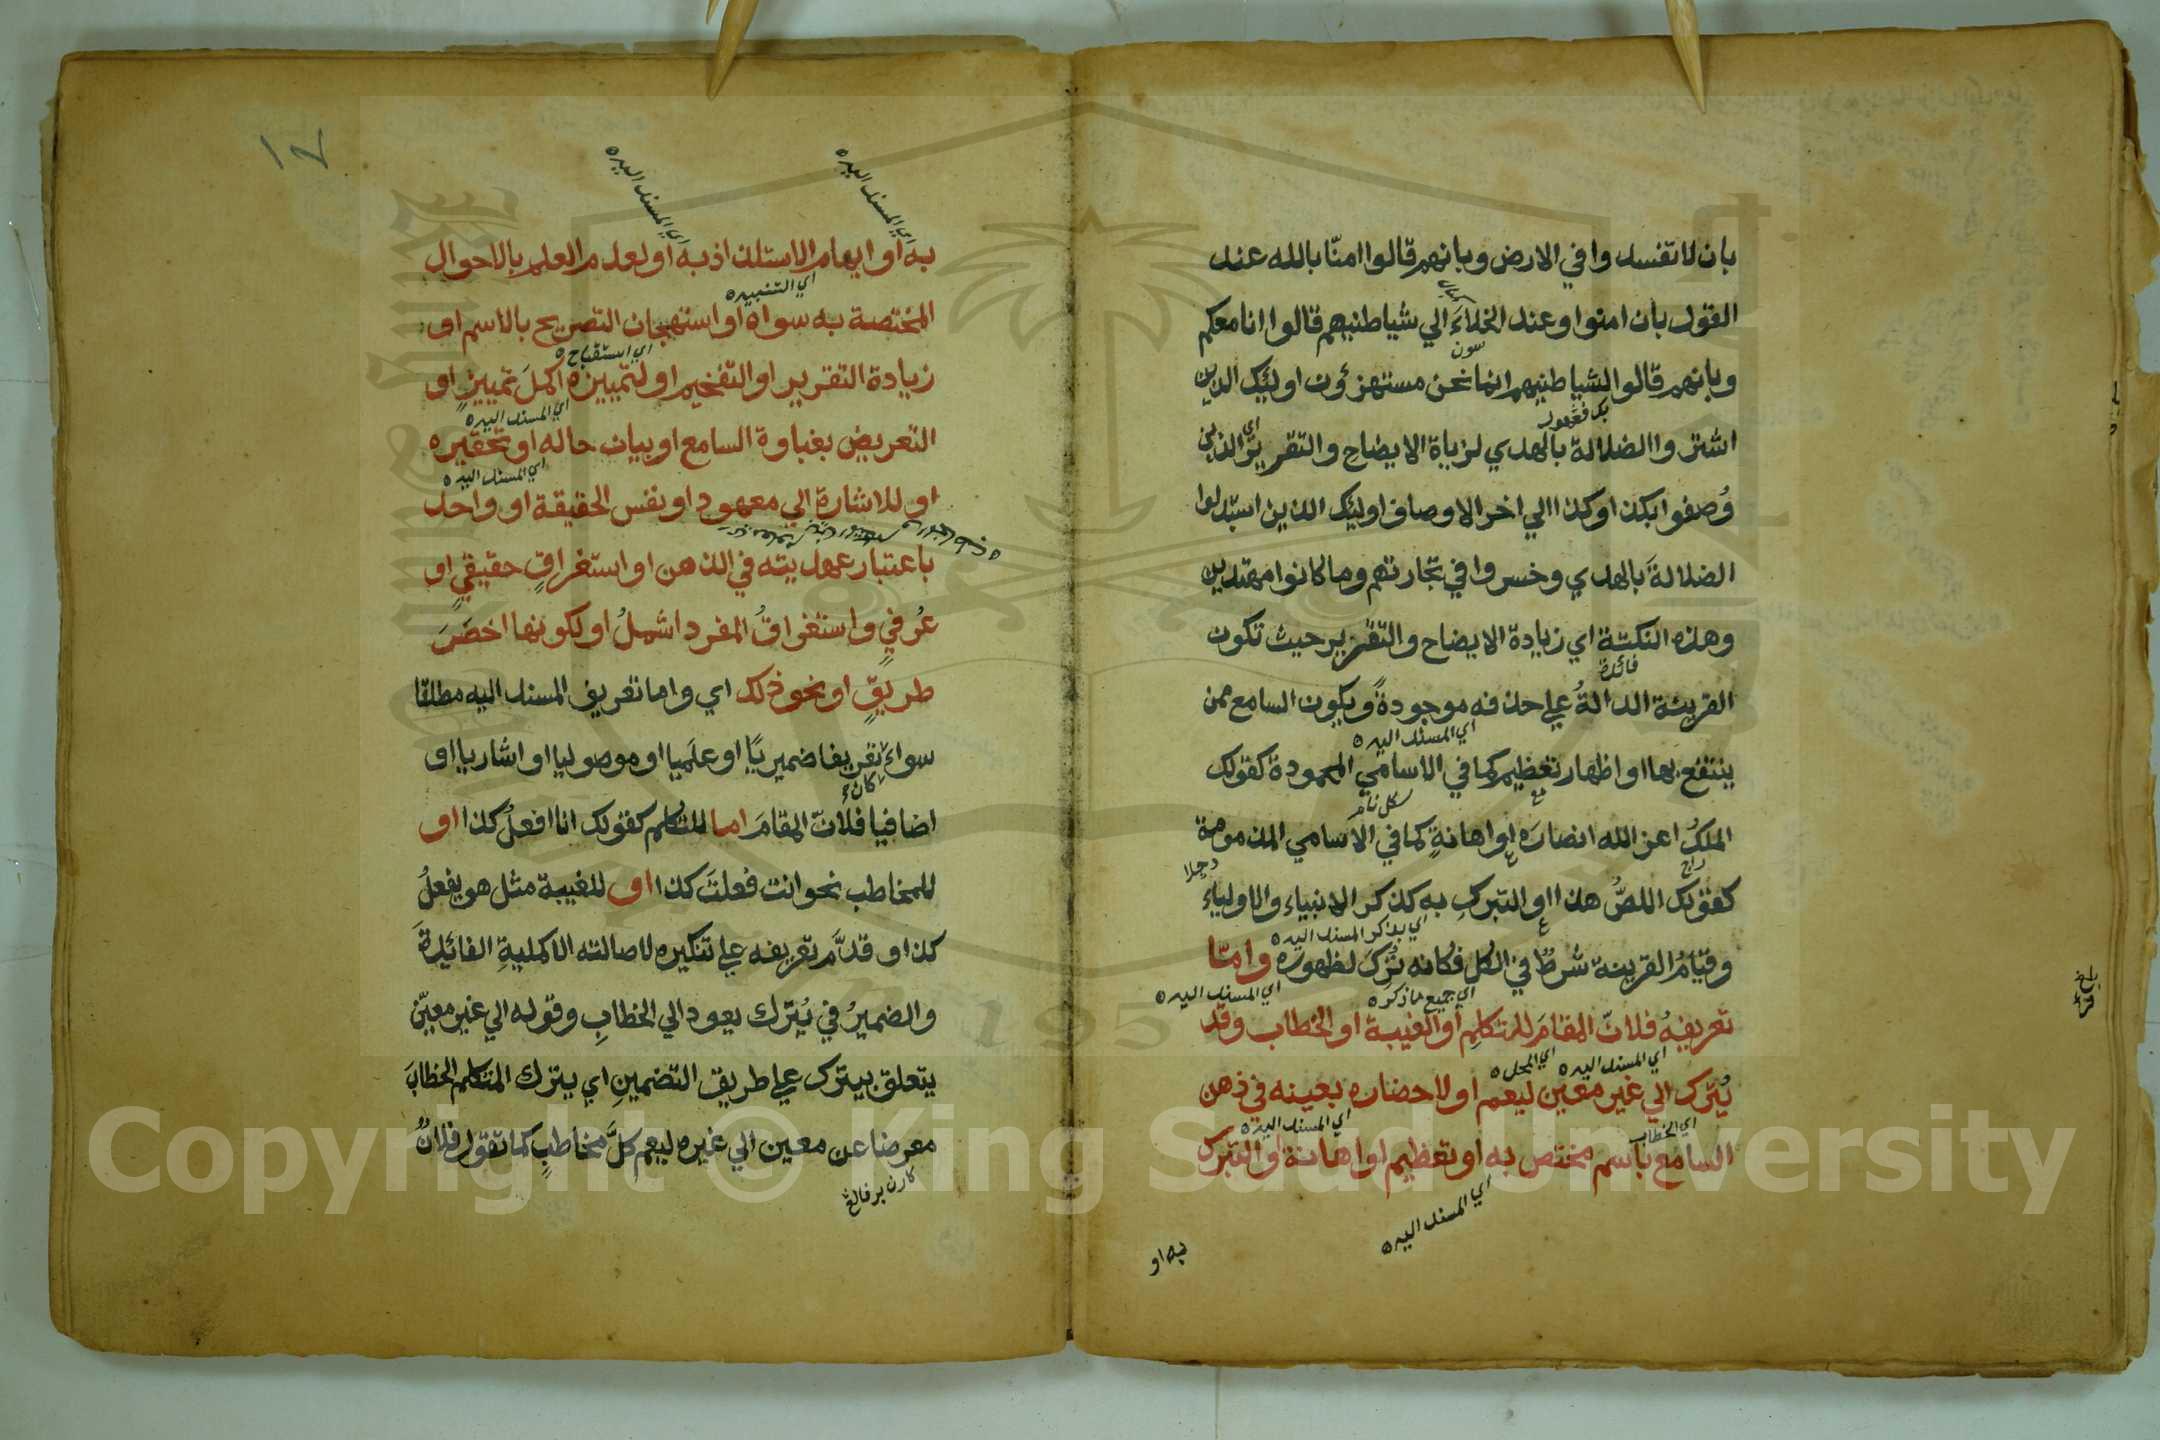 بان لا تفسدوا في الارض وبانهم قالوا امنّا بالله عند
القول بان امنوا وعند الخلاءَ الي شياطنيهم قالوا انا معكم
وبانهم قالوا لشياطنيهم انما نحن مستهزؤن اولئك الذين
اشتروا الضلالة بالهدي لزياة الايضاح والتقرير الذين
اي
وُصفوا بكذا وكذا الي اخر الاوصاف اولئك الذين استبدلوا
الضلالةَ بالهدي وخسروا في تجارتهم وما كانوا مهتدين
وهذه النكتة اي زيادة الايضاح والتقرير حيث تكون
فائدة
القرينة الدالةُ علي حذفه موجودةً ويكون السامع ممن
اي المسند اليه ه
ينتفع بها او اظهار تعظيم كما في الاسامي المحمودة كقولك
الملكُ اعز الله انصارَه او اهانةٍ كما في الاسامي المذمومة
كقولك اللصُّ هذا او التبركِ به كذكر الانبياء والاولياء
اي بذكر المسند اليه ه
وقيَامُ القرينة شرطٌ في الكل فكانه تُرِكَ لظهوره وامّا
اي جميع ما ذكر ه اي المسند اليه ه
تعريفهُ فلانّ المقامَ للمتكلمِ او الغيبة او الخطاب وقد
اي المسند اليه ه اي المحل ه
يُترك الي غير معين ليعم او لاحضاره بعينه في ذهن
اي الخطاب اي المسند اليه ه
السامع باسم مختص به او تعظيم او اهانة او التبرك
اي المسند اليه ه
به او
١٧
اي المسند اليه ه اي المسند اليه ه
به او ايهام الاستلذاذ به او لعدم العلم بالاحوال
اي التنبيه ه
المختصة به سواه او استهجان التصريح بالاسم او
اي استقباح ه
زيادة التقرير او التفخيم او لتمييزه اكملَ تمييزٍ او
اي المسند اليه ه
التعريض بغباوة السامع او بيان حاله او تحقيره
اي المسند اليه ه
او للاشارة الي معهود او نفس الحقيقة او واحد
باعتبار عهديته في الذهن او استغراقٍ حقيقيٍ او
عُرفيٍ واستغراقُ المفرد اشملُ او لكونها اخصَرَ
طريقٍ او نحو ذلك اي واما تعريف المسند اليه مطلقا
سواءٌ تعريفا ضميريًا او علَميا او موصوليا او اشاريا او
كان
اضافيا فلانّ المقامَ اما للمتكلم كقولك انا افعلُ كذا او
للمخاطب نحو انت فعلتَ كذا او للغيبة مثل هو يفعلُ
كذا وقدَّم تعريفه علي تنكيره لاصالته لاكمليةِ الفائدةِ
والضميرُ في يُترك يعود الي الخطابِ وقوله الي غير معيّن
يتعلق بيترك علي طريق التضمينِ اي يترك المتكلم الخطابَ
معرضا عن معين الي غيره ليعم كلَّ مخاطبٍ كما تقول فلانٌ
Copyright © King Saud University